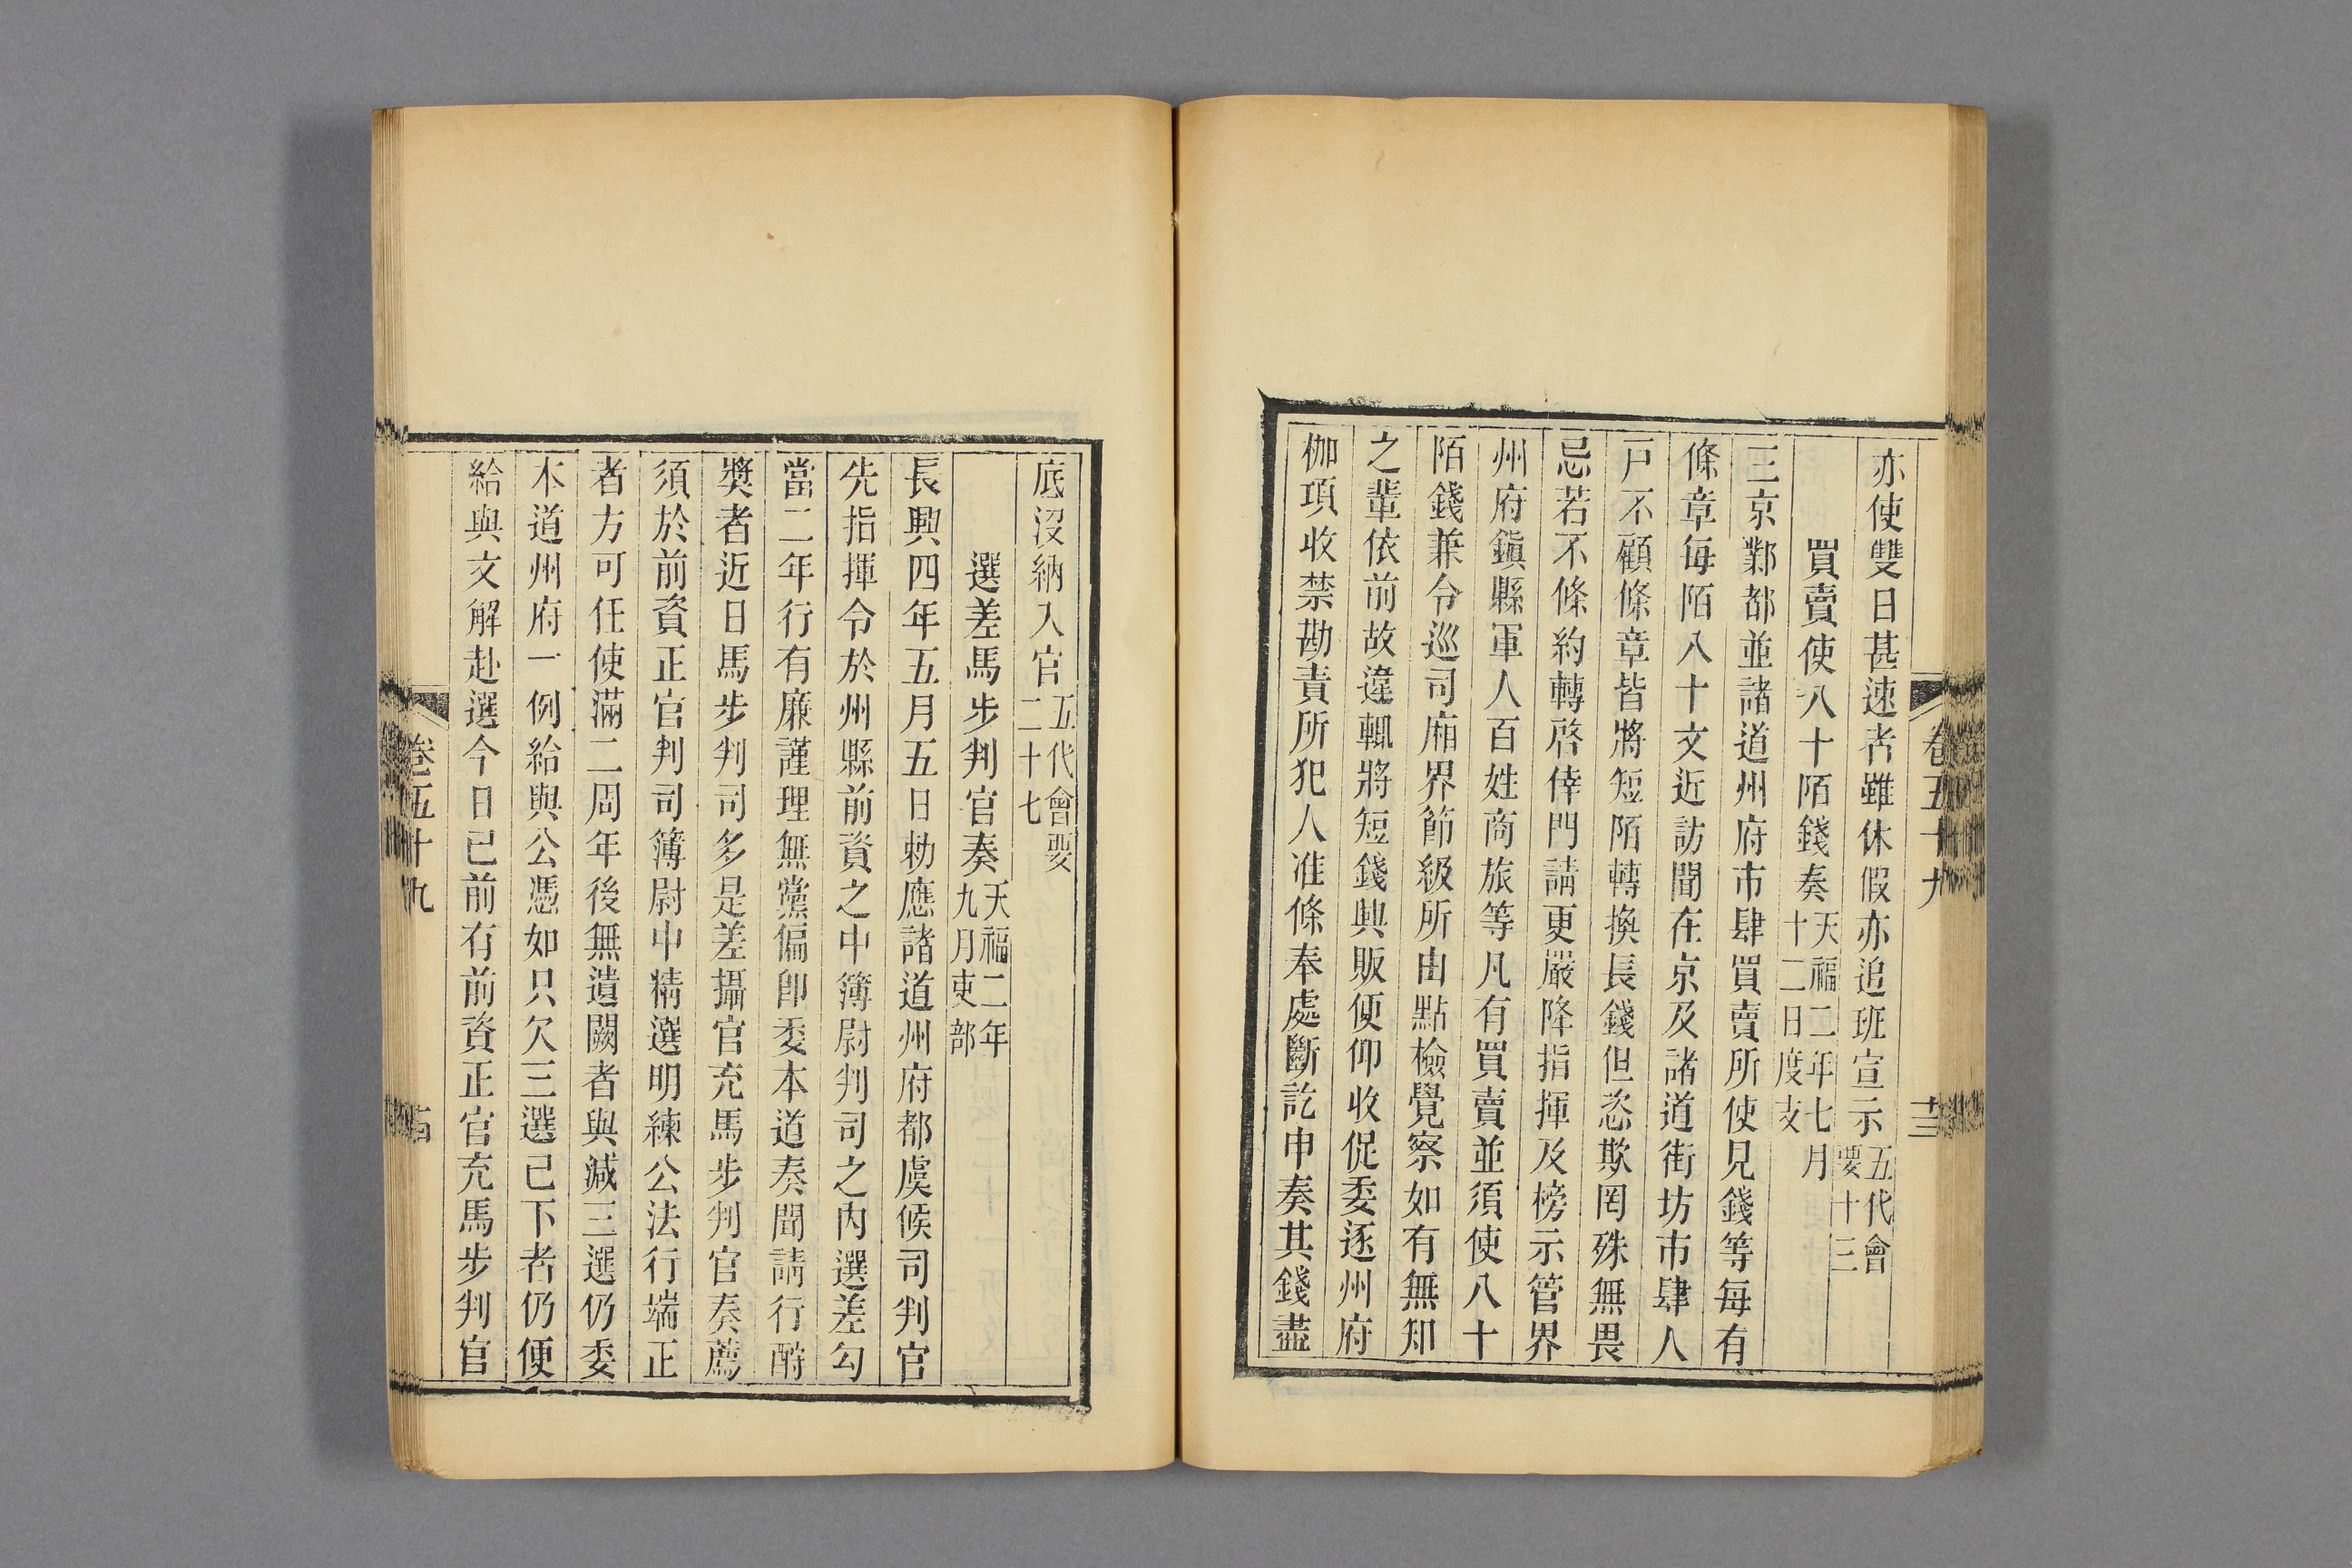 卷五十九
十三
亦使雙日甚速者雖休假亦追班宣示五代會要十三
買賣使八十陌錢奏天福二年七月十二日度支
三京鄴都並諸道州府市肆買賣所使見錢等每有
條章每陌八十文近訪聞在京及諸道街坊市肆人
戸不顧條章皆將短陌轉換長錢但恣欺罔殊無畏
忌若不條約轉啓倖門請更嚴降指揮及榜示管界
州府鎮縣軍人百姓商旅等凡有買賣並須使八十
陌錢兼令巡司廂界節級所由點檢覺察如有無知
之輩依前故違輒將短錢興販便仰收促委逐州府
枷項收禁勘責所犯人准條奉處斷訖申奏其錢盡
底沒納入官五代會要二十七
選差馬步判官奏天福二年九月吏部
長興四年五月五日勑應諸道州府都虞候司判官
先指揮令於州縣前資之中簿尉判司之內選差勾
當二年行有廉謹理無黨偏卽委本道奏聞請行酧
奬者近日馬步判司多是差攝官充馬步判官奏薦
須於前資正官判司簿尉中精選明練公法行端正
者方可任使滿二周年後無遺闕者與減三選仍委
本道州府一例給與公憑如只欠三選已下者仍便
給與文解赴選今日已前有前資正官充馬步判官
卷五十九